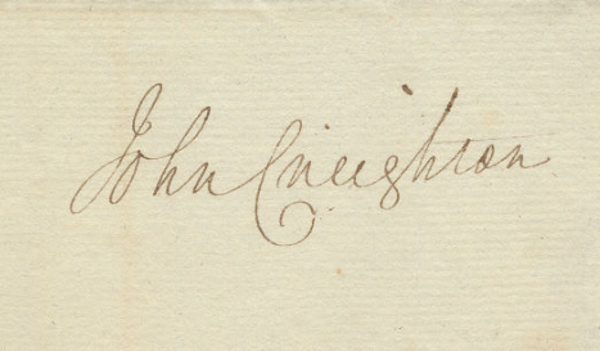 John Creighton